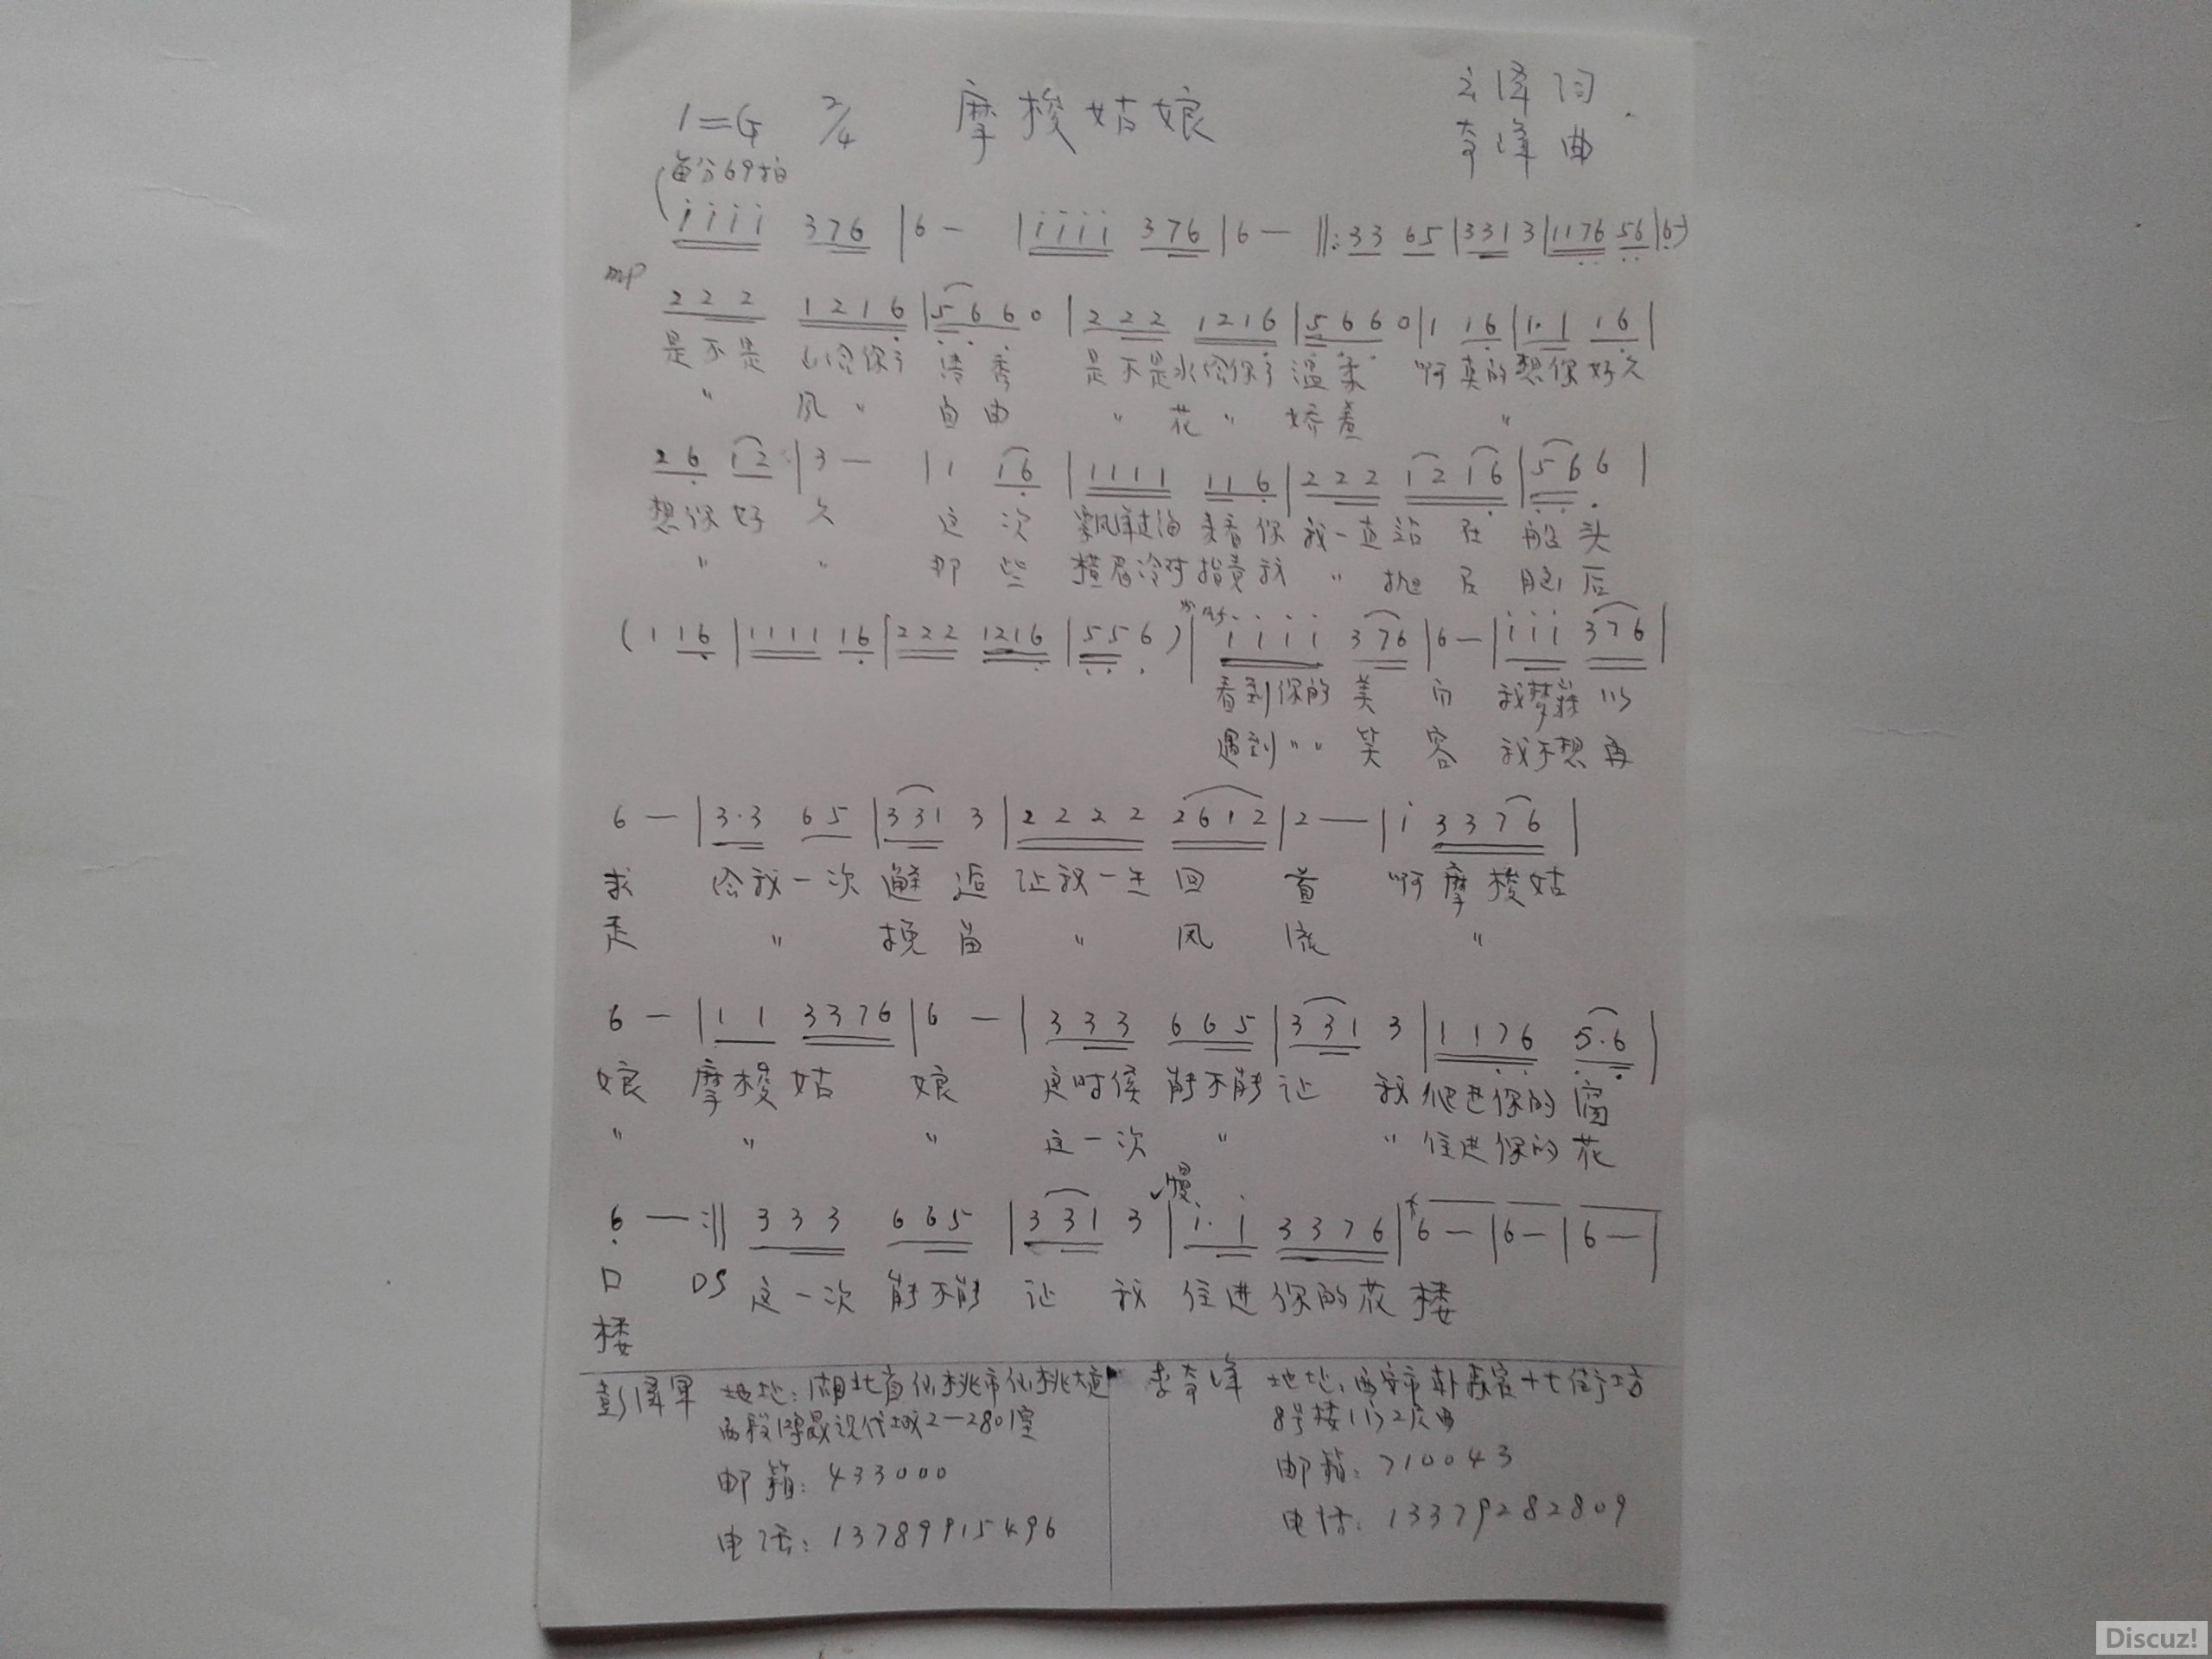 1=G 2/4 摩梭姑娘 泽词
每分69拍 奇峰 曲
( i i i i 3 7 6 | 6 — | i i i i 3 7 6 | 6 — ‖: 3 3 6 5 | 3 3 1 3 | 1 1 7 6 5 6 | 6 - )
mp 2 2 2 1 2 1 6 | 5 6 6 0 | 2 2 2 1 2 1 6 | 5 6 6 0 | 1 1 6 | 1. 1 1 6 |
是不是 山给你了 清秀 是不是水给你了 温柔 啊真的想你好久
" 风 " 自由 " 花 " 娇羞 "
2 6 1 2 | 3 — | 1 1 6 | 1 1 1 1 1 1 6 | 2 2 2 1 2 1 6 | 5 6 6 |
想你好 久 这 次 来看你 我一直站 在 船 头
" " 那 些 横眉冷对指责我 " 抛 在 脑 后
( 1 1 6 | 1 1 1 1 1 6 | 2 2 2 1 2 1 6 | 5 5 6 ) | mf i i i i 3 7 6 | 6 — | i i i 3 7 6 |
看到你的 美 我梦寐 以
遇到 " " 笑 容 我不想 再
6 — | 3 . 3 6 5 | 3 3 1 3 | 2 2 2 2 2 6 1 2 | 2 — | i 3 3 7 6 |
求 给我一次 邂 逅 让我一生 回 首 啊 摩 梭 姑
走 " 挽 留 " 风 流 "
6 — | 1 1 3 3 7 6 | 6 — | 3 3 3 6 6 5 | 3 3 1 3 | 1 1 7 6 5 . 6 |
娘 摩梭 姑 娘 这时候 能不能 让 我 爬进你的 窗
" " " 这一次 " " 住进你的 花
6 — :‖ 3 3 3 6 6 5 | 3 3 1 3 | 慢 i . i 3 3 7 6 | 6 — | 6 — | 6 — |
口 DS 这一次 能不能 让 我 住进 你的花 楼
楼
彭泽军 地址:湖北省仙桃市仙桃大道
西段 现代城2—2801室
邮箱:433000
电话:13789915496
李奇峰 地址:西安市韩森寨十七街坊
8号楼
邮箱:710043
电话:13379282809
Discuz!